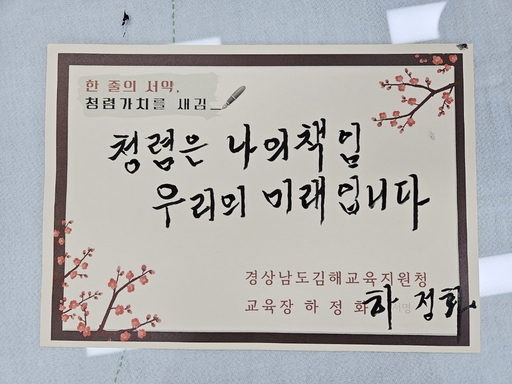 한 줄의 서약,
청렴가치를 새김
청렴은 나의 책임
우리의 미래입니다
경상남도김해교육지원청
교육장 하 정 화 하 정화